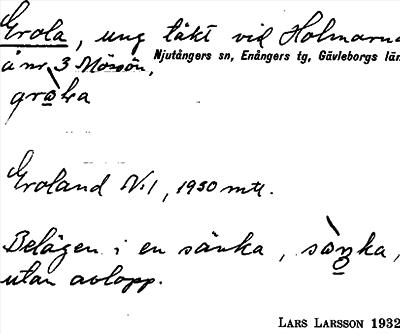 Grola, ung täkt vid Holmarna
Njutångers sn, Enångers tg, Gävleborgs län
å nr 3 Mössön,
gròla
Groland N:1, 1950 mtr.
Belägen i en sänka, sàṇka,
utan avlopp.
LARS LARSSON 1932